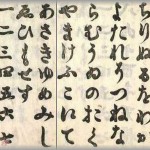 ちりぬるをわか
よたれそつねな
らむうゐのおく
やまけふこえて
あさきゆめみし
ゑひもせす
一二三四五六七